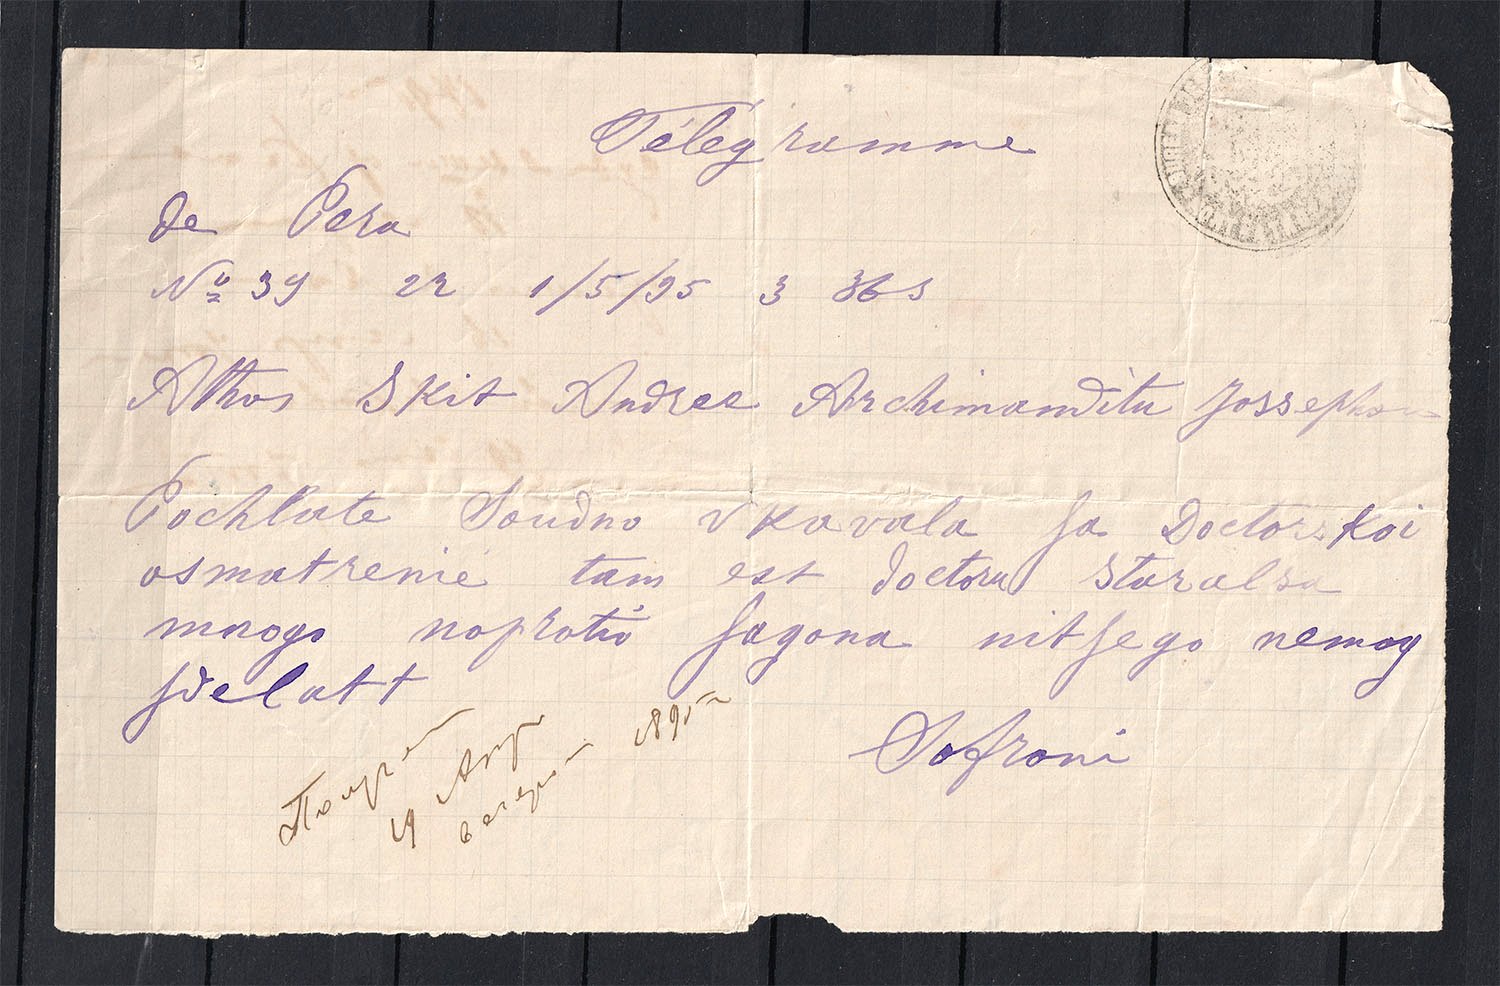 Télégramme
de Pera
No 39 22 1/5/95 3
Athos Skit Andree Archimanditu Jossephou
Pochlate Soudno v Kavala sa Doctorskoi
osmatrenié tam est doctoru staralsa
mnogo noprotiv sagona nitsego nemog
sdelatt
Sofroni
19 Апр
вечером 1895 г